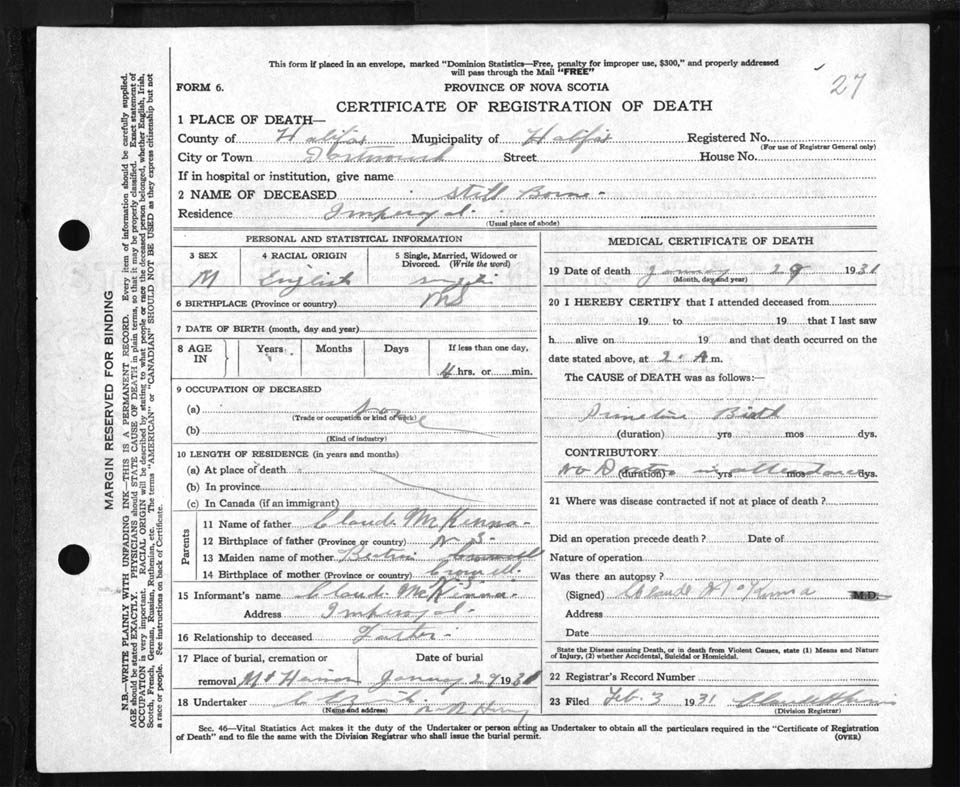 This form if placed in an envelope, marked "Dominion Statistics—Free, penalty for improper use, $300," and properly addressed
will pass through the Mail "FREE"
27
FORM 6.
PROVINCE OF NOVA SCOTIA
CERTIFICATE OF REGISTRATION OF DEATH
1 PLACE OF DEATH—
County of Halifax Municipality of Halifax Registered No.
(For use of Registrar General only)
City or Town Dartmouth Street House No.
If in hospital or institution, give name
2 NAME OF DECEASED Still Borne
Residence Imperoyal
(Usual place of abode)
PERSONAL AND STATISTICAL INFORMATION
3 SEX 4 RACIAL ORIGIN 5 Single, Married, Widowed or
Divorced. (Write the word)
M English
6 BIRTHPLACE (Province or country) NS
7 DATE OF BIRTH (month, day and year)
8 AGE IN Years Months Days If less than one day,
4 hrs. or min.
9 OCCUPATION OF DECEASED
(a)
(Trade or occupation or kind of work)
(b)
(Kind of industry)
10 LENGTH OF RESIDENCE (in years and months)
(a) At place of death
(b) In province
(c) In Canada (if an immigrant)
Parents
11 Name of father Claude McKenna
12 Birthplace of father (Province or country) N S
13 Maiden name of mother
14 Birthplace of mother (Province or country)
15 Informant's name Claude McKenna
Address Imperoyal
16 Relationship to deceased Father
17 Place of burial, cremation or Date of burial
removal January 29 1931
18 Undertaker
(Name and address)
MEDICAL CERTIFICATE OF DEATH
19 Date of death January 29 1931
(Month, day and year)
20 I HEREBY CERTIFY that I attended deceased from
19 to 19 that I last saw
h alive on 19 and that death occurred on the
date stated above, at 2 A m.
The CAUSE of DEATH was as follows:—
Birth
(duration) yrs mos dys.
CONTRIBUTORY
No Doctor in attendance
(duration) yrs mos dys.
21 Where was disease contracted if not at place of death?
Did an operation precede death? Date of
Nature of operation
Was there an autopsy?
(Signed) Claude McKenna M.D.
Address
Date
State the Disease causing Death, or in death from Violent Causes, state (1) Means and Nature
of Injury, (2) whether Accidental, Suicidal or Homicidal.
22 Registrar's Record Number
23 Filed Feb. 3 1931
(Division Registrar)
Sec. 46—Vital Statistics Act makes it the duty of the Undertaker or person acting as Undertaker to obtain all the particulars required in the "Certificate of Registration
of Death" and to file the same with the Division Registrar who shall issue the burial permit.
(OVER)
MARGIN RESERVED FOR BINDING
N.B.—WRITE PLAINLY WITH UNFADING INK—THIS IS A PERMANENT RECORD. Every item of information should be carefully supplied.
AGE should be stated EXACTLY. PHYSICIANS should STATE CAUSE OF DEATH in plain terms, so that it may be properly classified. Exact statement of
OCCUPATION is very important. RACIAL ORIGIN will be described by stating to what people or race the deceased person belonged, whether English, Irish,
Scotch, French, German, Russian, Ruthenian, etc. The terms "AMERICAN" or "CANADIAN" SHOULD NOT BE USED as they express citizenship but not
a race or people. See instructions on back of Certificate.